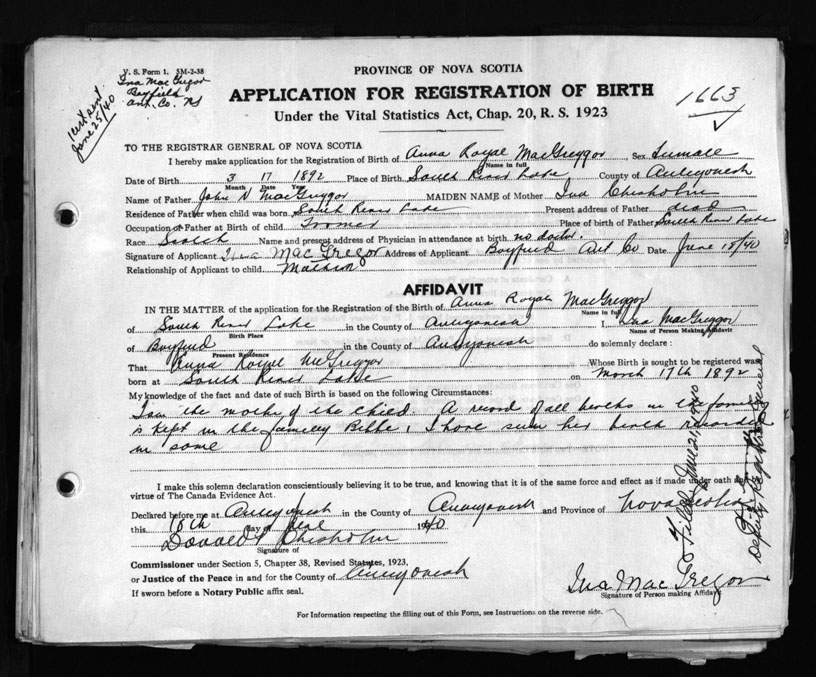 V. S. Form 1. 5M-2-38
Ina Mac Gregor
Bayfield
Ant. Co. NS
Cert sent
June 25/40
PROVINCE OF NOVA SCOTIA
APPLICATION FOR REGISTRATION OF BIRTH
Under the Vital Statistics Act, Chap. 20, R. S. 1923
1663
TO THE REGISTRAR GENERAL OF NOVA SCOTIA
I hereby make application for the Registration of Birth of Anna Royal MacGreggor, Sex Female
Name in full
Date of Birth 3 17 1892 Place of Birth South River Lake County of Antigonish
Month Date Year
Name of Father John MacGreggor MAIDEN NAME of Mother Ina Chisholm
Residence of Father when child was born South River Lake Present address of Father dead
Occupation of Father at Birth of child Farmer Place of birth of Father South River Lake
Race Scotch Name and present address of Physician in attendance at birth no doctor.
Signature of Applicant Ina MacGregor Address of Applicant Bayfield Ant Co Date June 18/40
Relationship of Applicant to child. Mother
AFFIDAVIT
IN THE MATTER of the application for the Registration of the Birth of Anna Royal MacGreggor
Name in full
of South River Lake in the County of Antigonish I, Ina MacGreggor
Birth Place Name of Person Making Affidavit
of Bayfield in the County of Antigonish do solemnly declare:
Present Residence
That Anna Royal McGreggor Whose Birth is sought to be registered was
born at South River Lake on March 17th 1892
My knowledge of the fact and date of such Birth is based on the following Circumstances:
I am the mother of the child. A record of all births in the family
is kept in the family Bible, I have seen her birth recorded
in same
I make this solemn declaration conscientiously believing it to be true, and knowing that it is of the same force and effect as if made under oath and by
virtue of The Canada Evidence Act.
Declared before me at Antigonish in the County of Antigonish and Province of Nova Scotia
this 18th day of June 1940
Donald Chisholm
Signature of
Commissioner under Section 5, Chapter 38, Revised Statutes, 1923,
or Justice of the Peace in and for the County of Antigonish
If sworn before a Notary Public affix seal.
Ina MacGregor
Signature of Person making Affidavit
Filed June 21, 1940
Deputy Registrar General
For Information respecting the filling out of this Form, see Instructions on the reverse side.